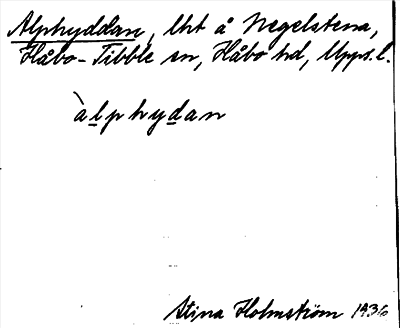 Alphyddan, lht å Negelstena,
Håbo-Tibble sn, Håbo hd, Upps. l.
àlphydan
Stina Holmström 1936